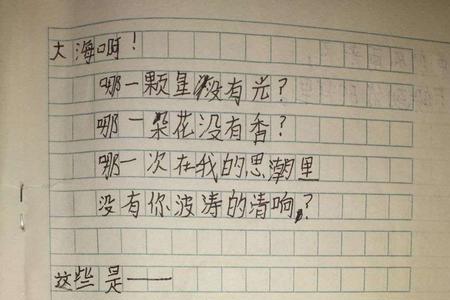 大海啊！
哪一颗星没有光？
哪一朵花没有香？
哪一次在我的思潮里
没有你波涛的清响？
这些是——